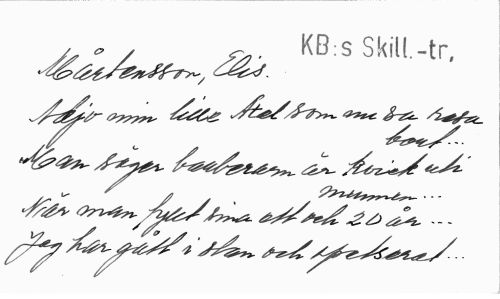 KB:s Skill.-tr.
Mårtensson, Elis.
Adjö min lille Axel som nu ska resa
bort...
Man säger barberarn är kvick uti
munnen...
När man fyllt sina ett och 20 år...
Jag har gått i stan och spatserat...